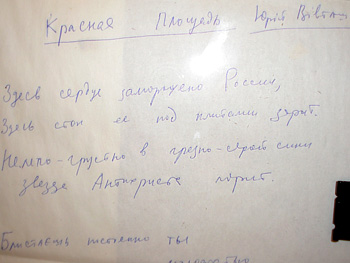 Красная Площадь Юрій
Здесь сердце заморожено России,
Здесь стон ее под плитами зарыт.
Нелепо-грустно в грязно-серой сини
звезда Антихриста горит.
ты